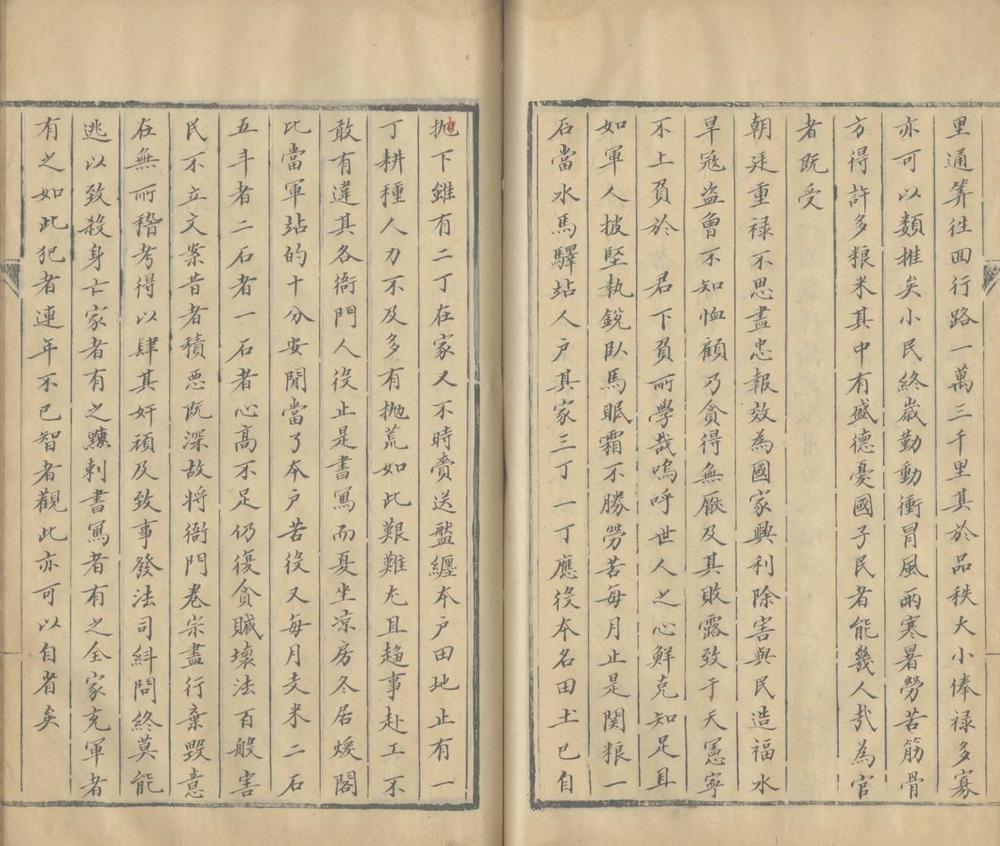 里通筭徃囬行路一萬三千里其於品秩大小俸禄多寡
亦可以類推矣小民終歳勤動衝冒風雨寒暑勞苦筋骨
方得許多粮米其中有盛德憂國子民者能幾人㢤為官
者既受
朝廷重禄不思盡忠報效為國家興利除害與民造福水
旱冦盗曾不知恤顧乃貪得無厭及其敗露致于天憲寧
不上負於君下負所學哉嗚呼世人之心鮮克知足且
如軍人披堅執銳臥馬眠霜不勝勞苦每月止是関粮一
石當水馬驛站人户其家三丁一丁應役本名田土已自
抛下雖有二丁在家又不時賫送盤纏本户田地止有一
丁耕種人力不及多有抛荒如此艱難尤且趋事赴工不
敢有違其各衙門人役止是書寫而夏坐凉房冬居煖閣
比當軍站的十分安閒當了本户苦役又每月支米二石
五斗者二石者一石者心高不足仍復貪贓壞法百般害
民不立文案昔者積悪既深故將衙門卷宗盡行棄毀意
在無所稽考得以肆其奸頑及致事發法司紏問終莫能
迯以致殺身亡家者有之黥刺書寫者有之全家充軍者
有之如此犯者連年不已智者觀此亦可以自省矣